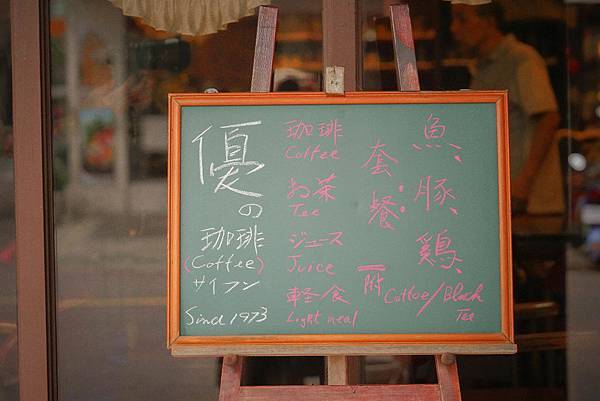 優
の
珈琲
(Coffee)
サイフン
Since 1973
珈琲
Coffee
お茶
Tea
ジュース
Juice
軽食
Light meal
套餐：
魚、豚、鷄、
附 Coffee/Black
Tea